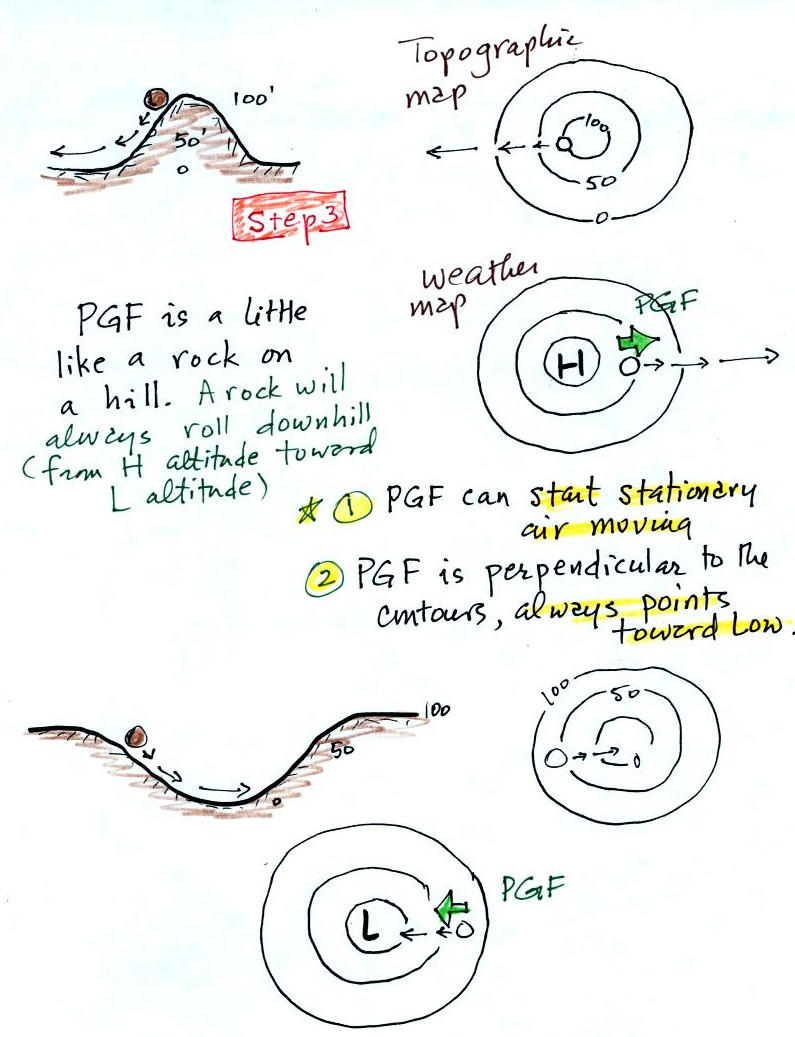 Topographic
map
100'
50'
0
100
50
0
Step 3
Weather
map
PGF
H
PGF is a little
like a rock on
a hill. A rock will
always roll downhill
(from H altitude toward
L altitude)
① PGF can start stationary
air moving
② PGF is perpendicular to the
contours, always points
toward Low.
100
50
0
100
50
0
L
PGF